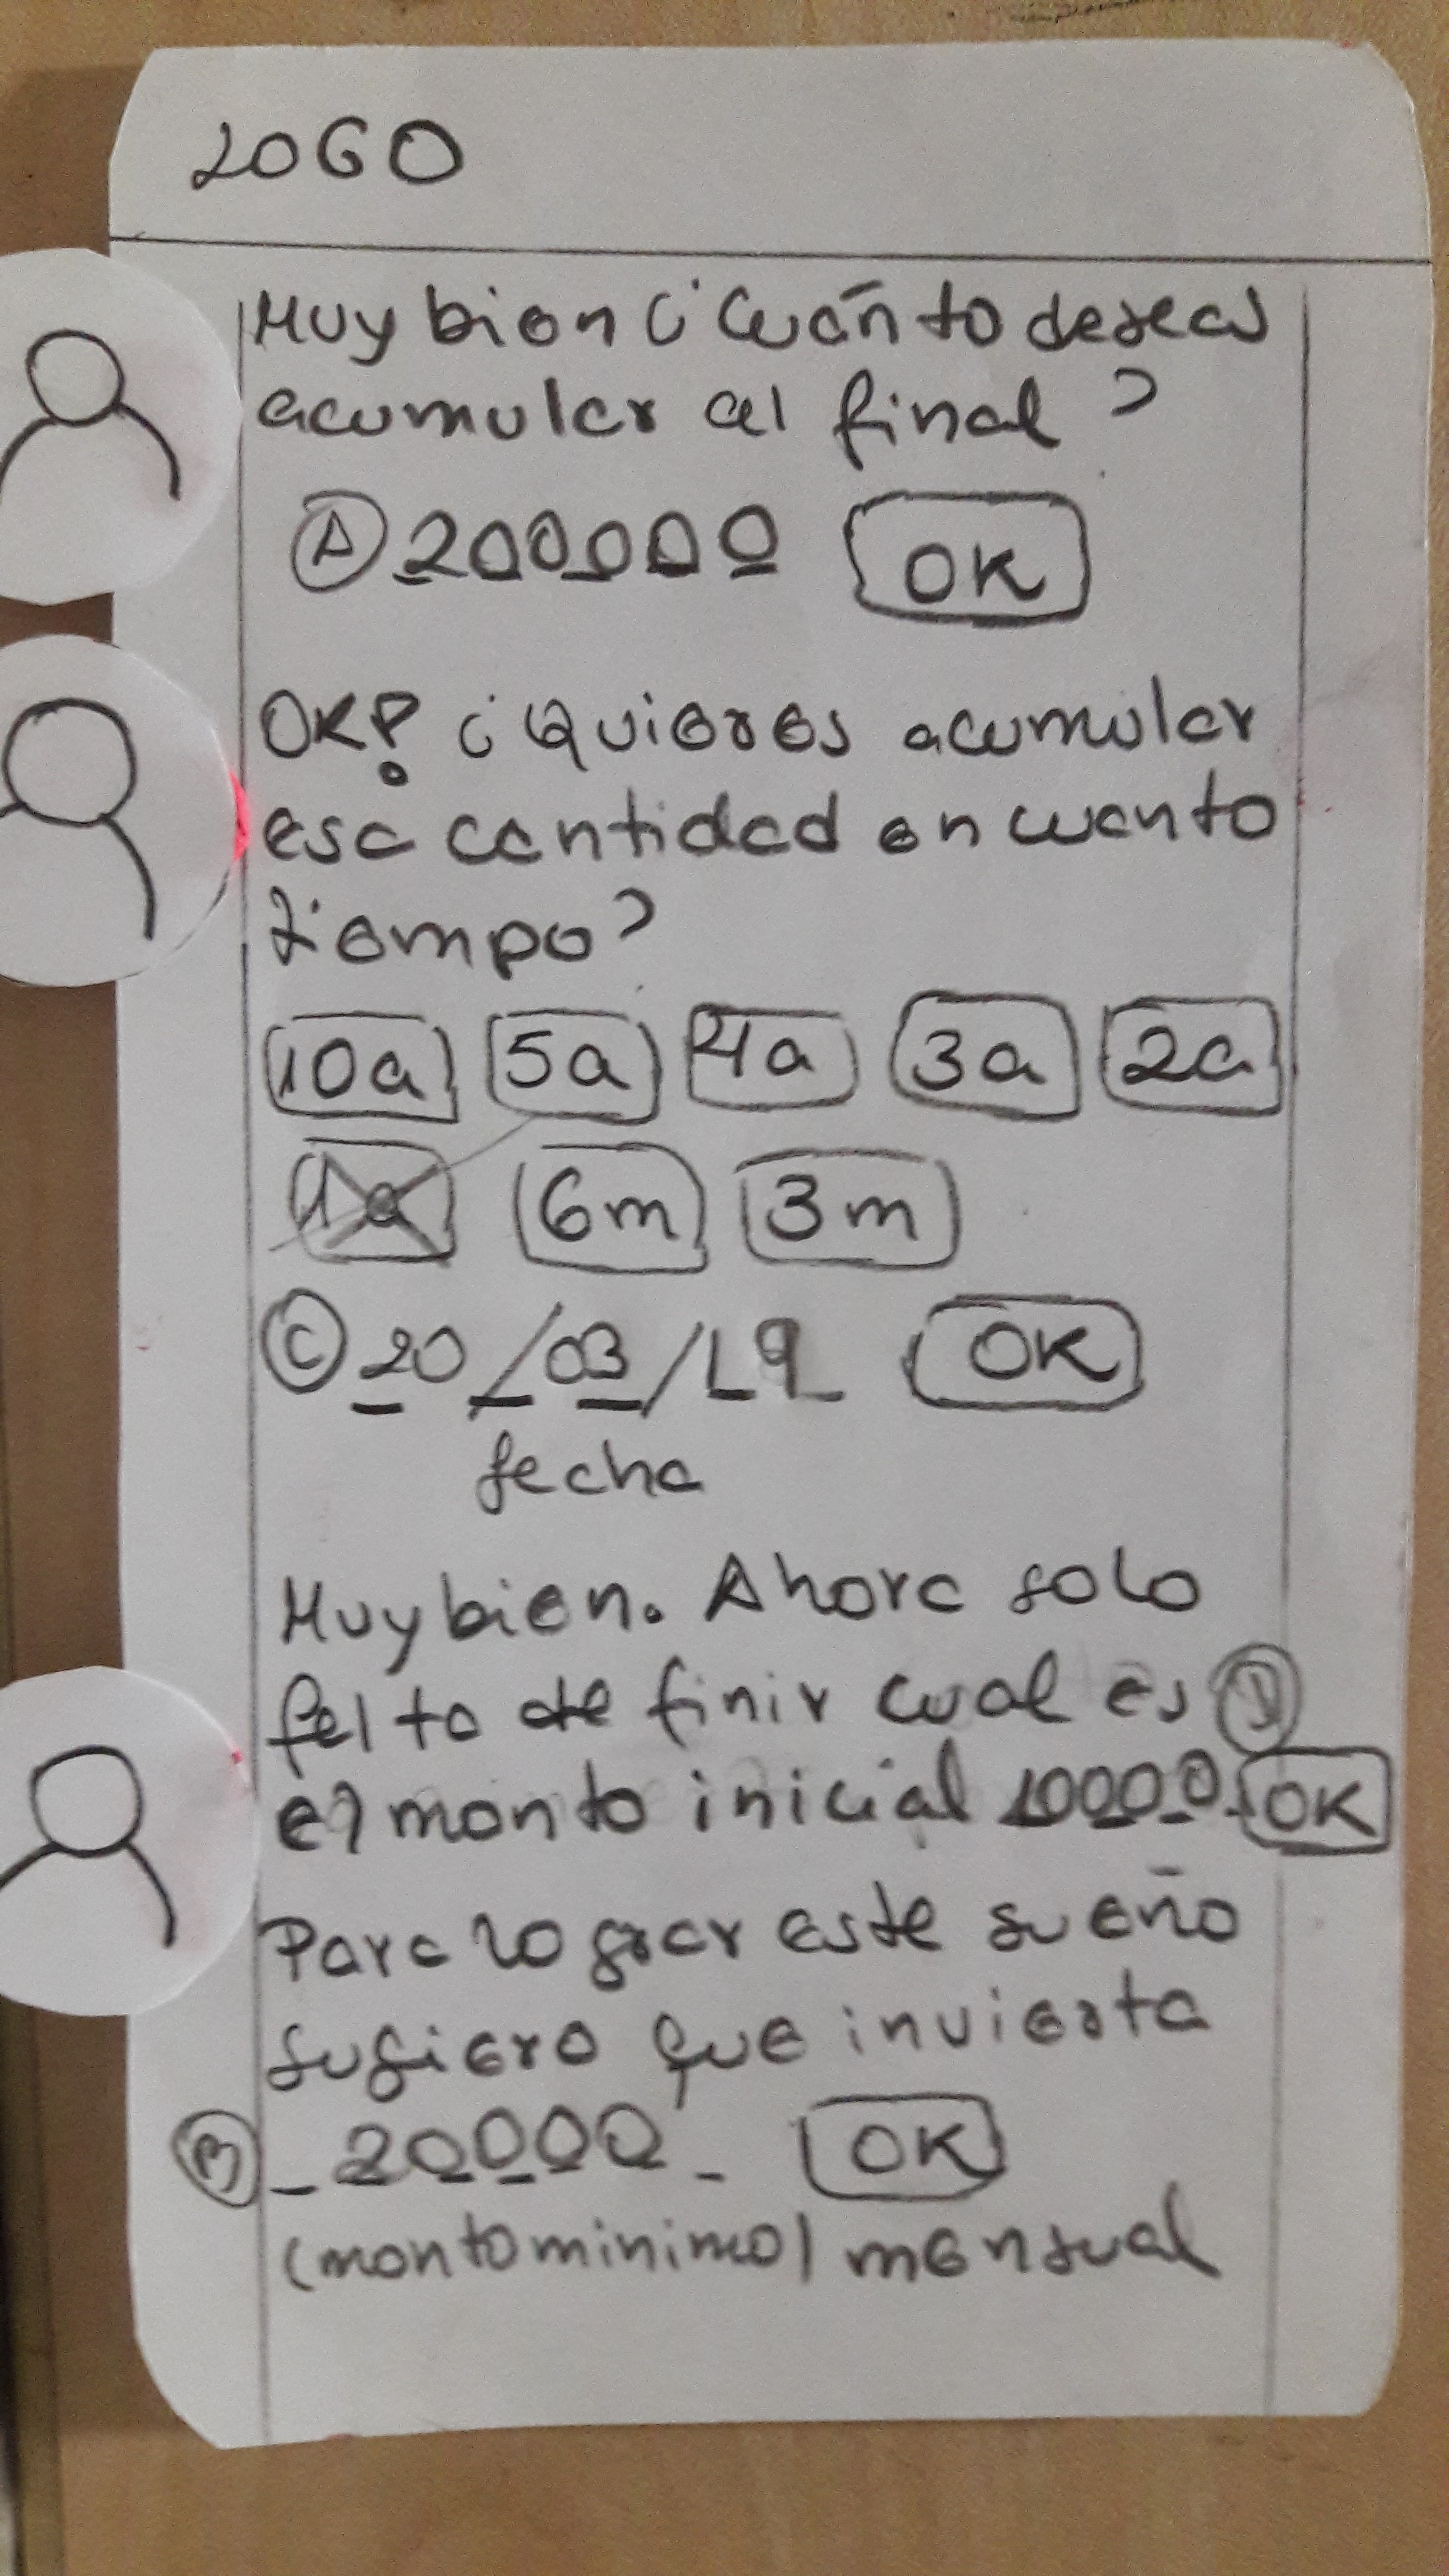 LOGO
Muy bien ¿Cuánto deseas
acumular al final?
A 200000 OK
OK? ¿Quieres acumular
esa cantidad en cuanto
tiempo?
10a 5a 4a 3a 2a
1a 6m 3m
C 20/03/19 OK
fecha
Muy bien. Ahora solo
falta definir cual es
el monto inicial 10000 OK
Para lograr este sueño
sugiero que invierta
B 20000 OK
(monto minimo) mensual